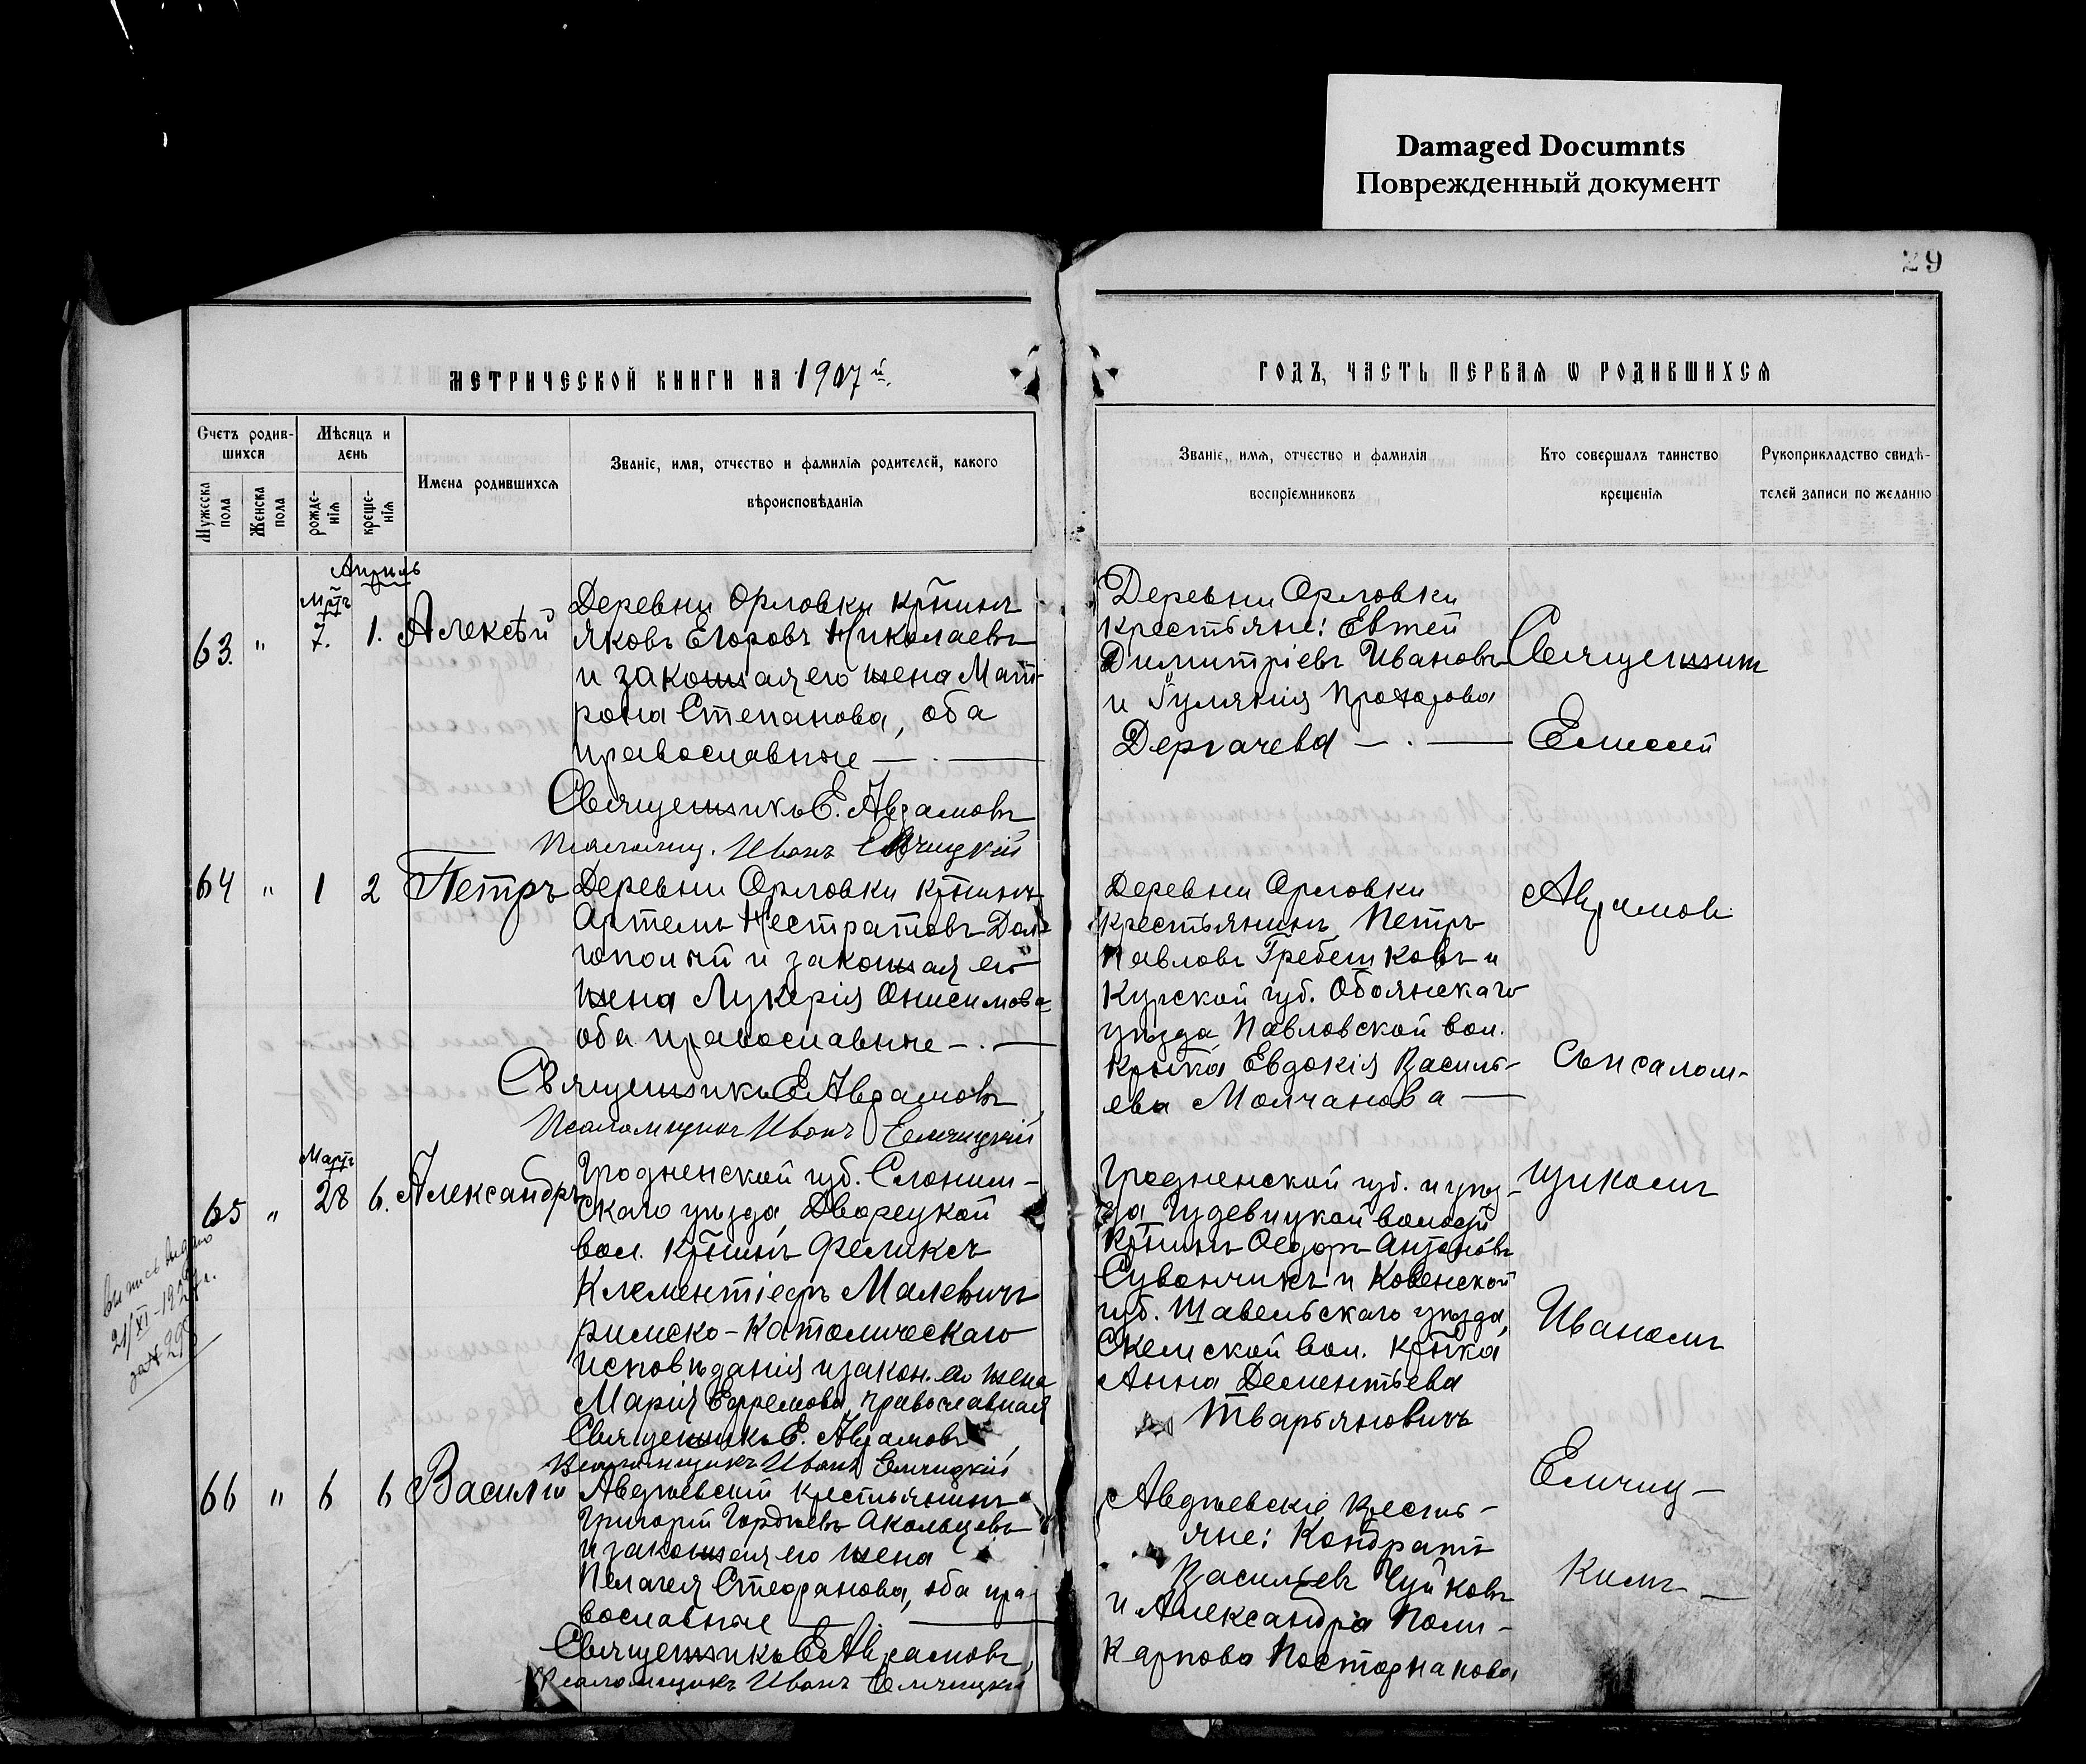 Damaged Documnts
Поврежденный документ
29
МЕТРИЧЕСКОЙ КНИГИ НА 1907 й.
ГОДЪ, ЧАСТЬ ПЕРВАЯ Ѡ РОДИВШИХСЯ
Счетъ родив-
шихся
Мужеска пола
Женска пола
Мѣсяцъ и
день
рожде-
нія
креще-
нія
Имена родившихся
Званіе, имя, отчество и фамилія родителей, какого
вѣроисповѣданія
Званіе, имя, отчество и фамилія
воспріемниковъ
Кто совершалъ таинство
крещенія
Рукоприкладство свидѣ-
телей записи по желанію
Апрѣль
Мртъ
63. " 7. 1. Алексѣй
Деревни Орловки крнинъ
Яковъ Егоровъ Николаевъ
и законная его жена Мат-
рона Степанова, оба
православные
Священникъ Е. Авраловъ
Псаломщ. Иванъ Елчицкій
Деревни Орловки
крестьяне: Евтей
Димитріевъ Ивановъ
и Гуляния Прохорова
Дергачева
64 " 1 2 Петръ
Деревни Орловки крнинъ
Артемъ Нестратовъ Дол-
гополый и законная его
жена Лукерія Онисимова
оба православные
Священникъ Е Авраловъ
Псаломщикъ Иванъ Елчицкій
Деревни Орловки
крестьянинъ Петръ
Павловъ Гребешковъ и
Курской губ. Обоянскаго
уѣзда, Павловской вол.
крнка Евдокія Василь-
ева Молчанова
Мартъ
65 " 28 6. Александръ
Гродненской губ. Слоним-
скаго уѣзда, Дворецкой
вол. крнинъ Феликсъ
Клементіевъ Малевичъ
римско-католическаго
исповѣданія и закон. его жена
Марія Ефремова, православная
Священникъ Е. Авраловъ
Псаломщикъ Иванъ Елчицкій
Гродненской губ. и уѣз-
да Гудевицкой волости
крнинъ Ѳедоръ Антоновъ
Сувончикъ и Ковенской
губ. Шавельскаго уѣзда,
вол. крнка
Анна Дементьева
Тварьяновичъ
Выпись выдана
21/XI-192
за № 29
66 " 6 6 Василій
Авдѣевскій крестьянинъ
Григорій Гордѣевъ Акользевъ
и законная его жена
Пелагея Стефанова, оба пра-
вославные
Священникъ Е Авраловъ
Псаломщикъ Иванъ Елчицкій
Авдѣевскіе кресть-
яне: Кондратъ
Васильевъ Чуйковъ
и Александра Поли-
карпова
Священник
Елисей
Авралов
съ псалом-
щикомъ
Иваномъ
Елчиц-
кимъ